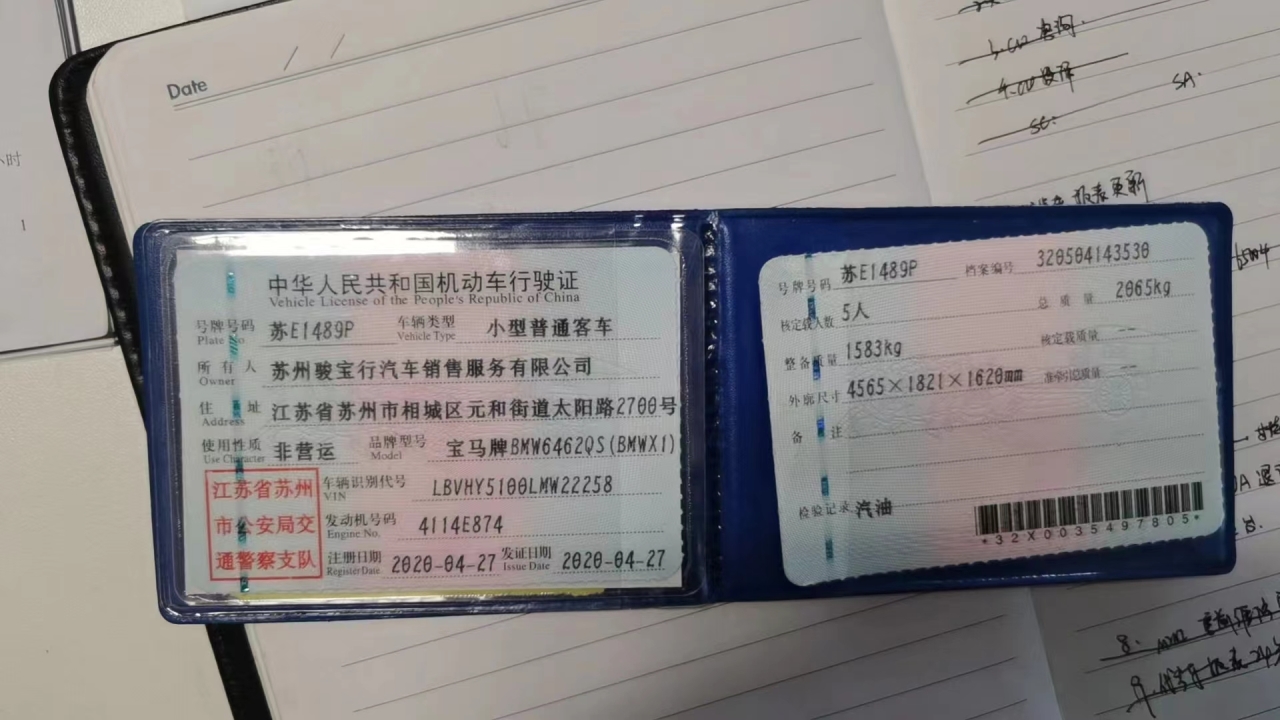 Date
小时
1
SA.
SC.
报表更新
中华人民共和国机动车行驶证
Vehicle License of the People's Republic of China
号牌号码 苏E1489P 车辆类型 小型普通客车
Plate No Vehicle Type
所有人 苏州骏宝行汽车销售服务有限公司
Owner
住址 江苏省苏州市相城区元和街道太阳路2700号
Address
使用性质 非营运 品牌型号 宝马牌BMW6462QS(BMWX1)
Use Character Model
江苏省苏州
市公安局交
通警察支队
车辆识别代号 LBVHY5100LMW22258
VIN
发动机号码 4114E874
Engine No.
注册日期 2020-04-27 发证日期 2020-04-27
Register Date Issue Date
号牌号码 苏E1489P 档案编号 320504143530
核定载人数 5人 总质量 2065kg
整备质量 1583kg 核定载质量 --
外廓尺寸 4565×1821×1620mm 准牵引总质量 --
备注
检验记录 汽油
*32X0035497805*
8.
9.